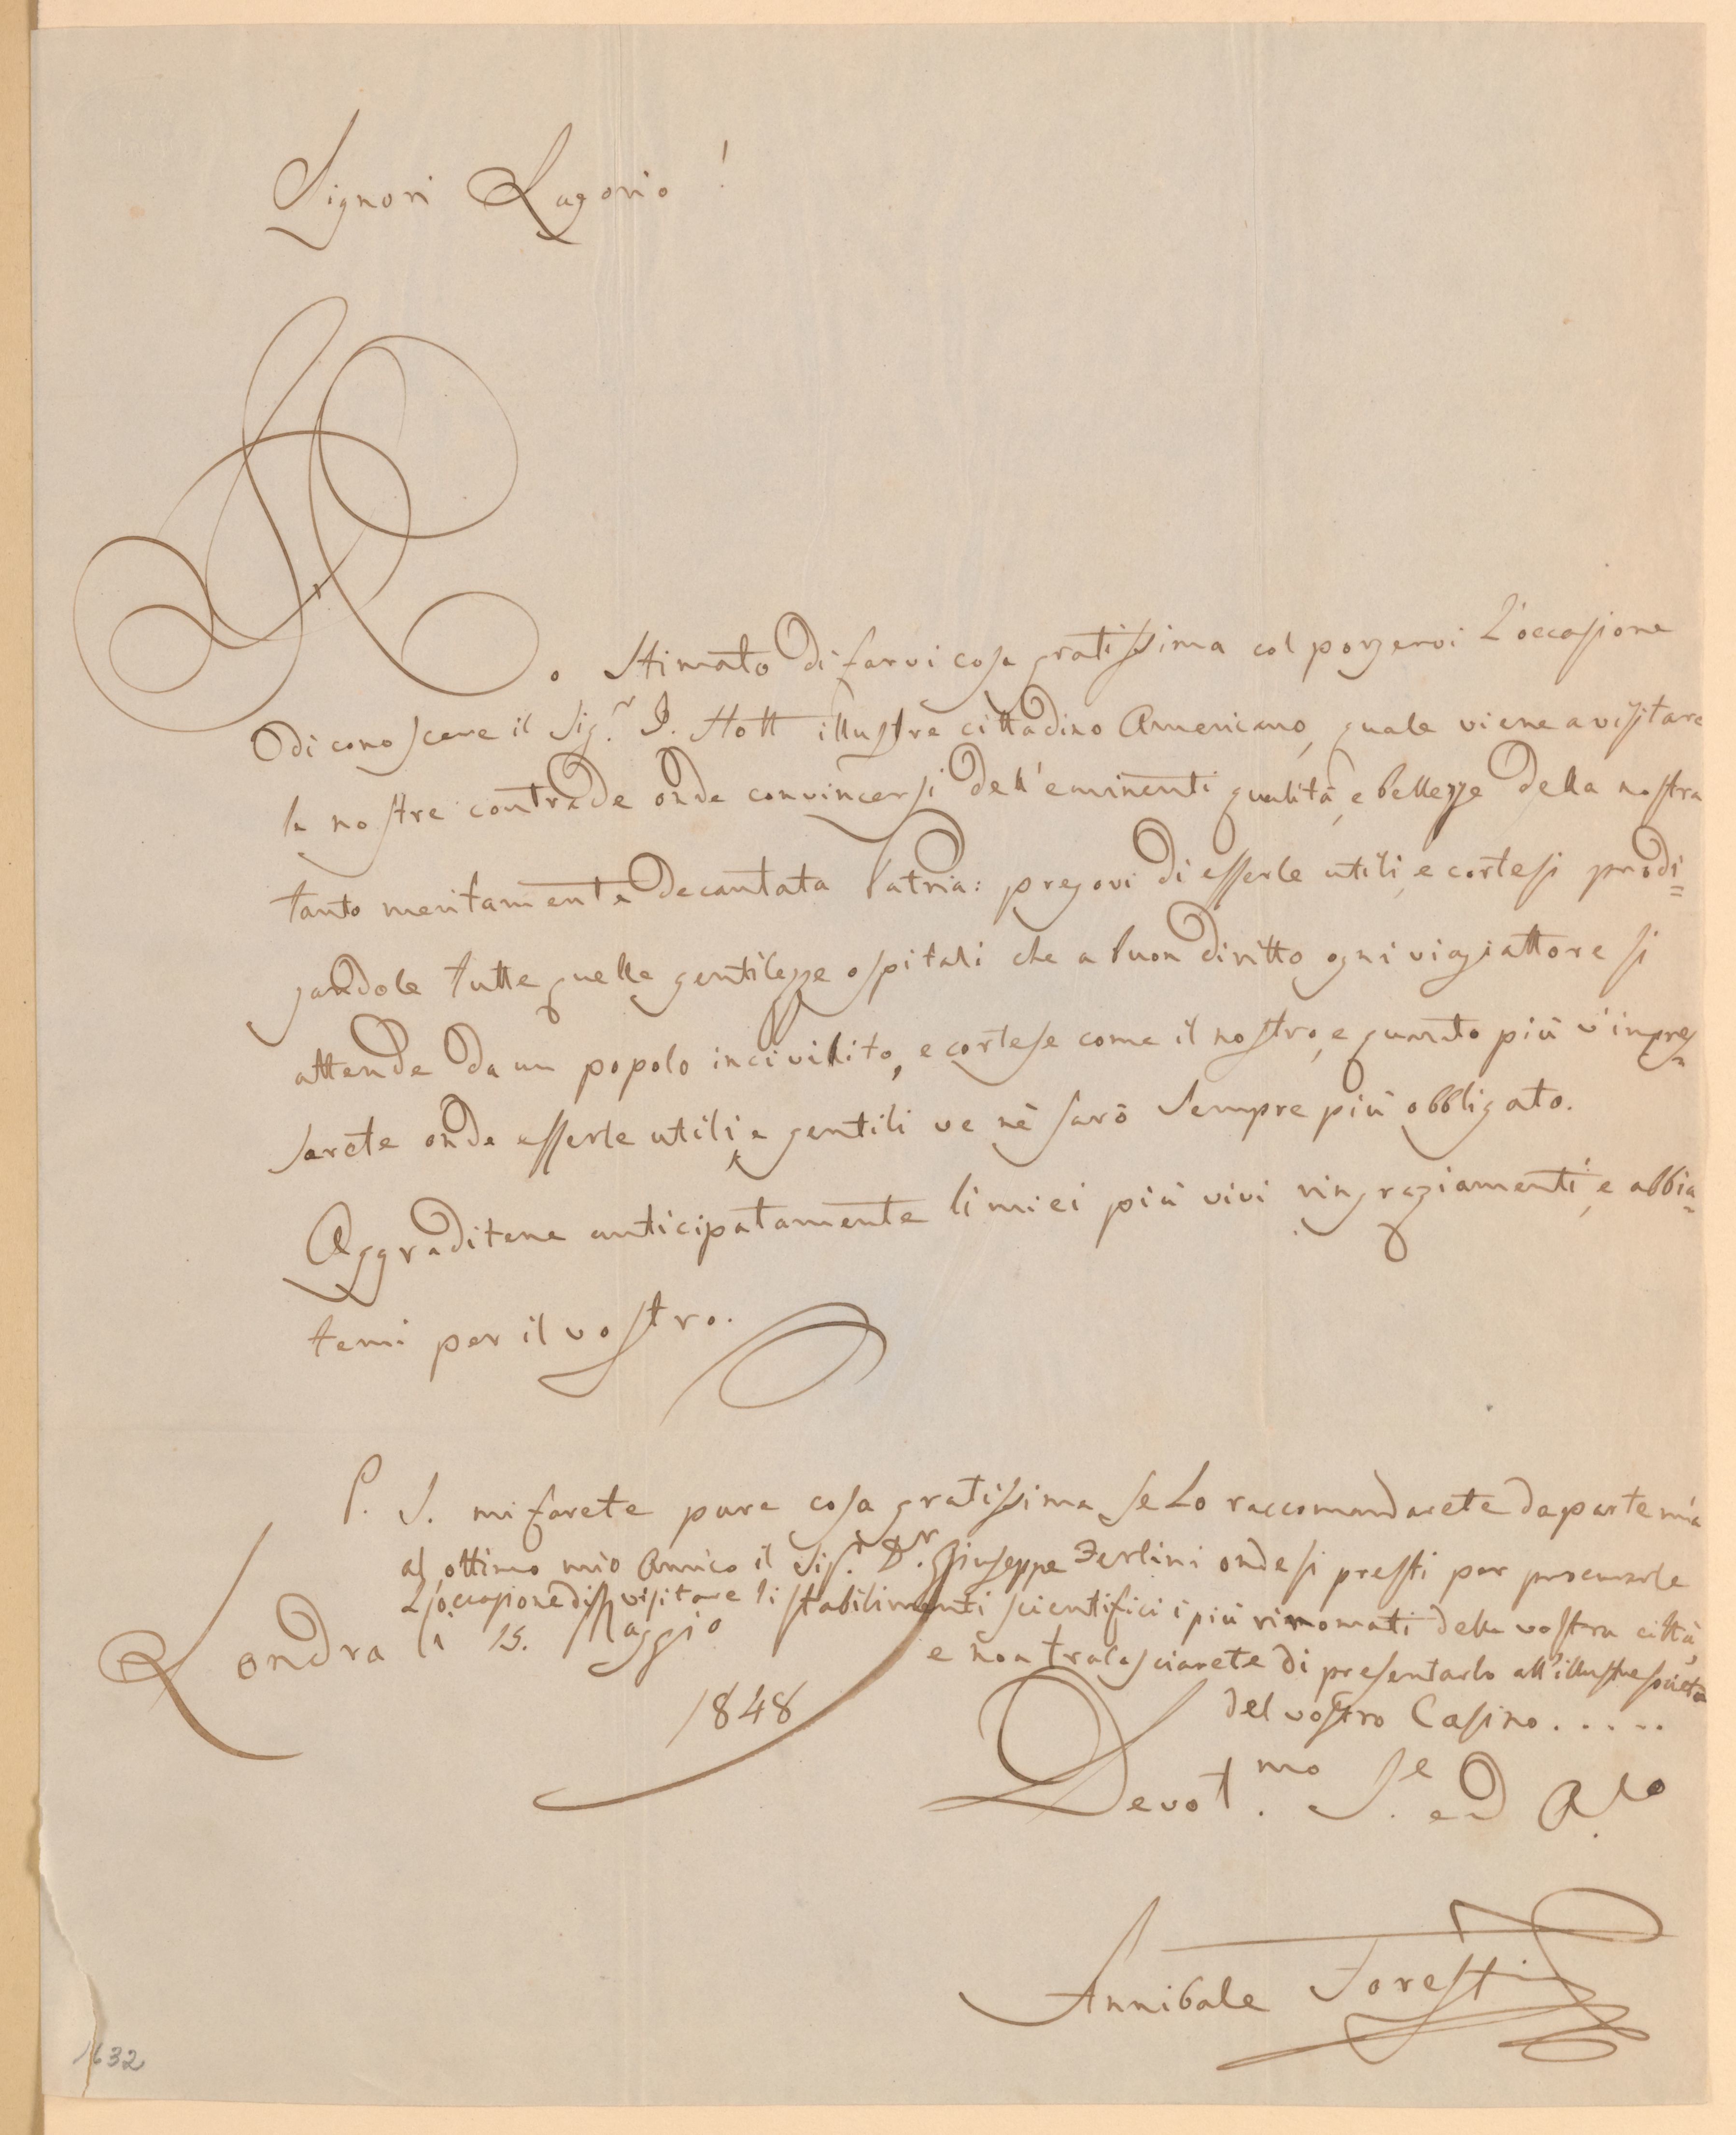 Signori Lagorio!
Ho stimato di farvi cosa gratissima col porgervi L'occasione
di conoscere il Sig.r J. Mott illustre cittadino Americano, quale viene a visitare
le nostre contrade onde convincersi dell'eminenti qualità, e bellezze della nostra
tanto meritamente decantata Patria: pregovi di esserle utili, e cortesi prodi=
gandole tutte quelle gentilezze ospitali che a buon diritto ogni viaggiattore si
attende da un popolo incivilito, e cortese come il nostro, e quanto più v'impres=
sarete onde esserle utili, e gentili ve nè sarò sempre più obbligato.
Aggraditene anticipatamente li miei più vivi ringraziamenti, e abbia=
temi per il vostro.
P. S. mi farete pure cosa gratissima se Lo raccomandarete da parte mia
al ottimo mio Amico il Sig.r D.r Giuseppe Ferlini onde si presti per procurarle
L'occasione di visitare li stabilimenti scientifici i più rinomati della vostra città,
e non tralasciarete di presentarlo all'illustre società
del vostro Casino.....
Londra li 15. Maggio
1848
Devot.mo S.e ed A.co
Annibale Foresti
1632